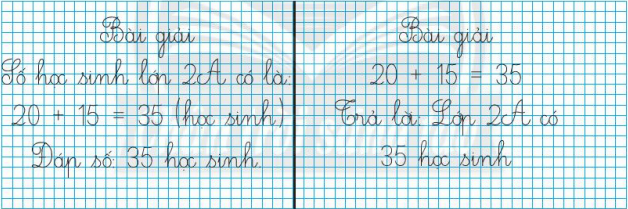 Bài giải
Số học sinh lớp 2A có là:
20 + 15 = 35 (học sinh)
Đáp số: 35 học sinh.
Bài giải
20 + 15 = 35
Trả lời: Lớp 2A có
35 học sinh